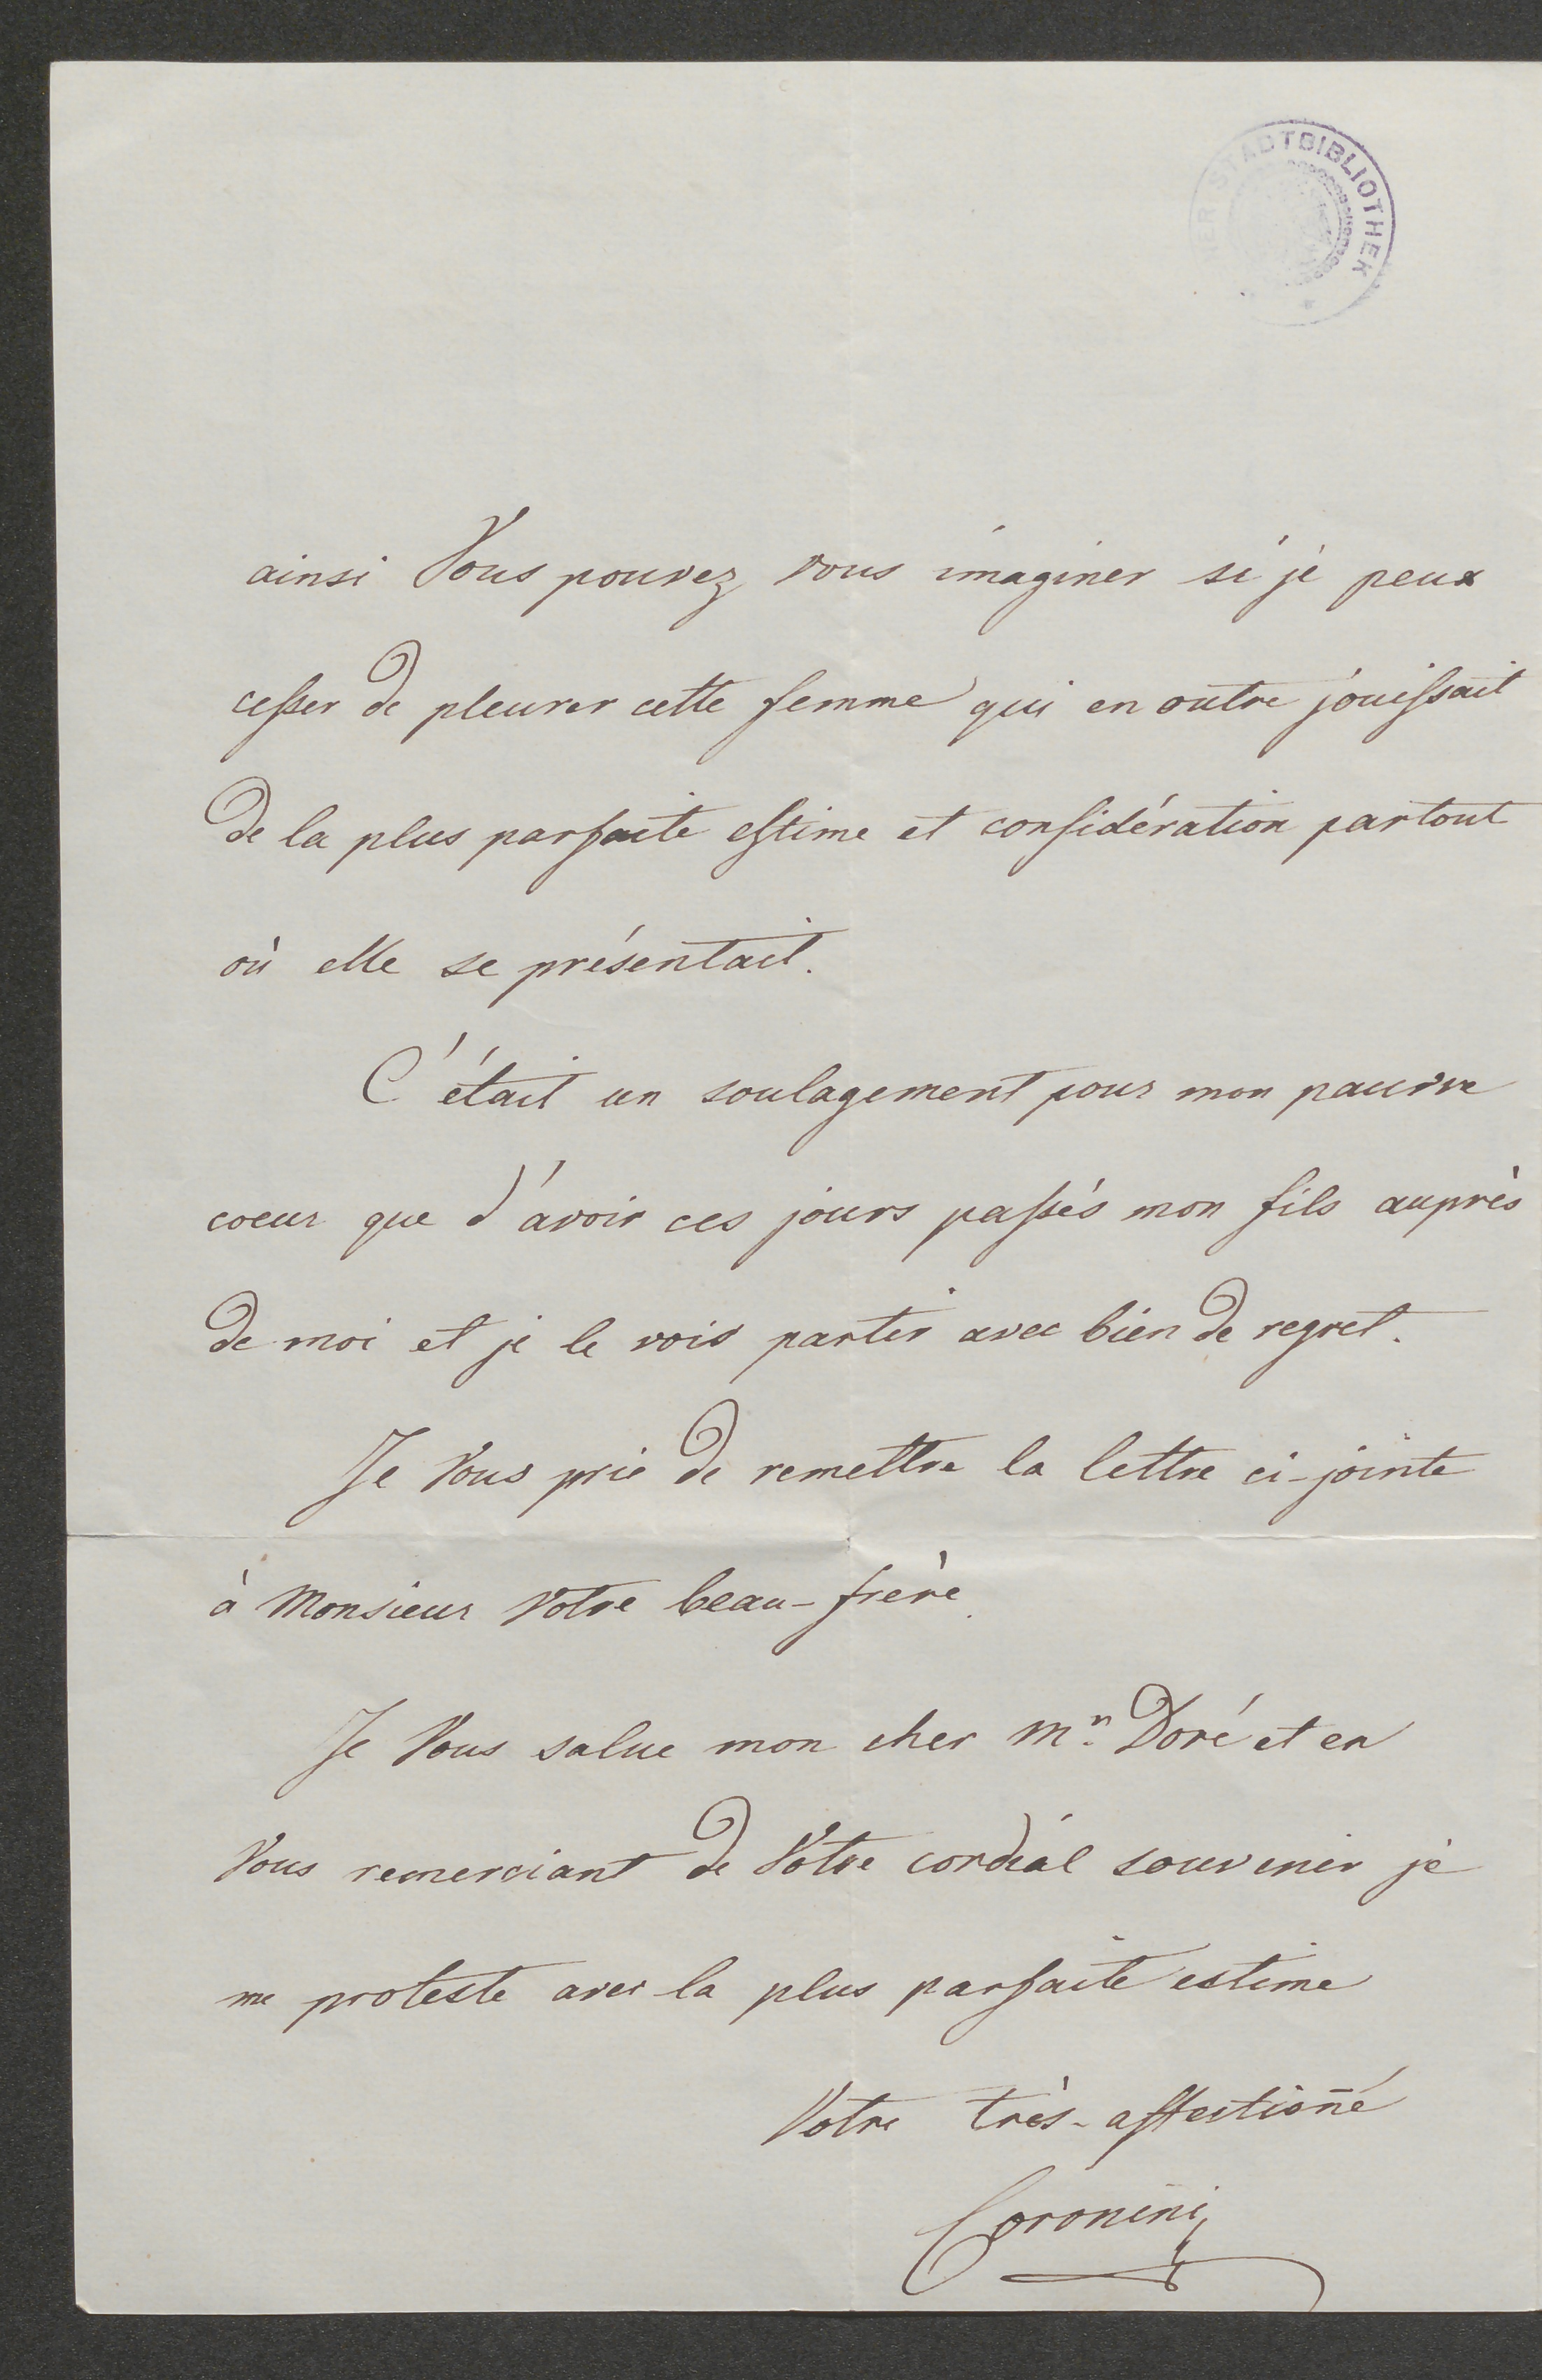 STADTBIBLIOTHEK
ainsi Vous pouvez vous imaginer si je peux
cesser de pleurer cette femme qui en outre jouissait
de la plus parfaite estime et considération partout
où elle se présentait.
C'était un soulagement pour mon pauvre
coeur que d'avoir ces jours passés mon fils auprès
de moi et je le vois partir avec bien de regret.
Je Vous prie de remettre la lettre ci-jointe
à Monsieur Votre beau-frère.
Je Vous salue mon cher Mr. Doré et en
Vous remerciant de Votre cordial souvenir je
me proteste avec la plus parfaite estime
Votre très-affectioñé
Coronini